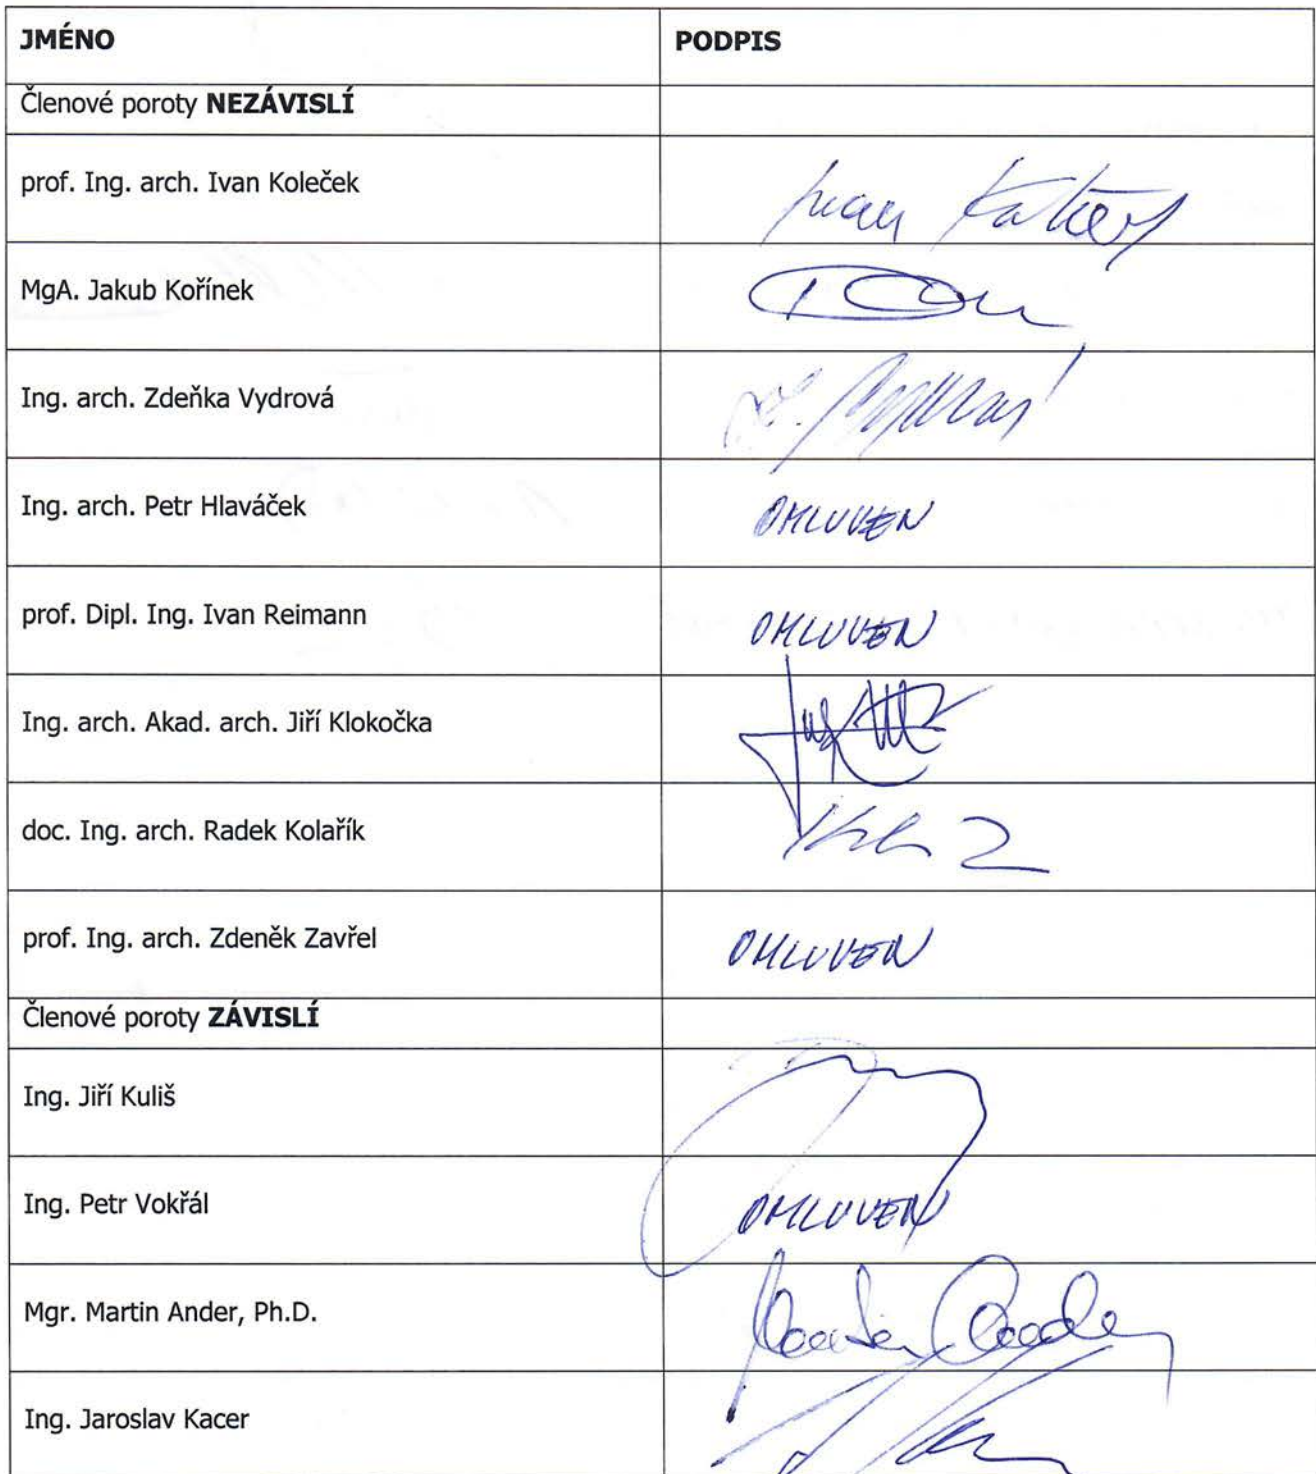 JMÉNO PODPIS
Členové poroty NEZÁVISLÍ
prof. Ing. arch. Ivan Koleček
MgA. Jakub Kořínek
Ing. arch. Zdeňka Vydrová
Ing. arch. Petr Hlaváček OMLUVEN
prof. Dipl. Ing. Ivan Reimann OMLUVEN
Ing. arch. Akad. arch. Jiří Klokočka
doc. Ing. arch. Radek Kolařík
prof. Ing. arch. Zdeněk Zavřel OMLUVEN
Členové poroty ZÁVISLÍ
Ing. Jiří Kuliš
Ing. Petr Vokřál OMLUVEN
Mgr. Martin Ander, Ph.D.
Ing. Jaroslav Kacer